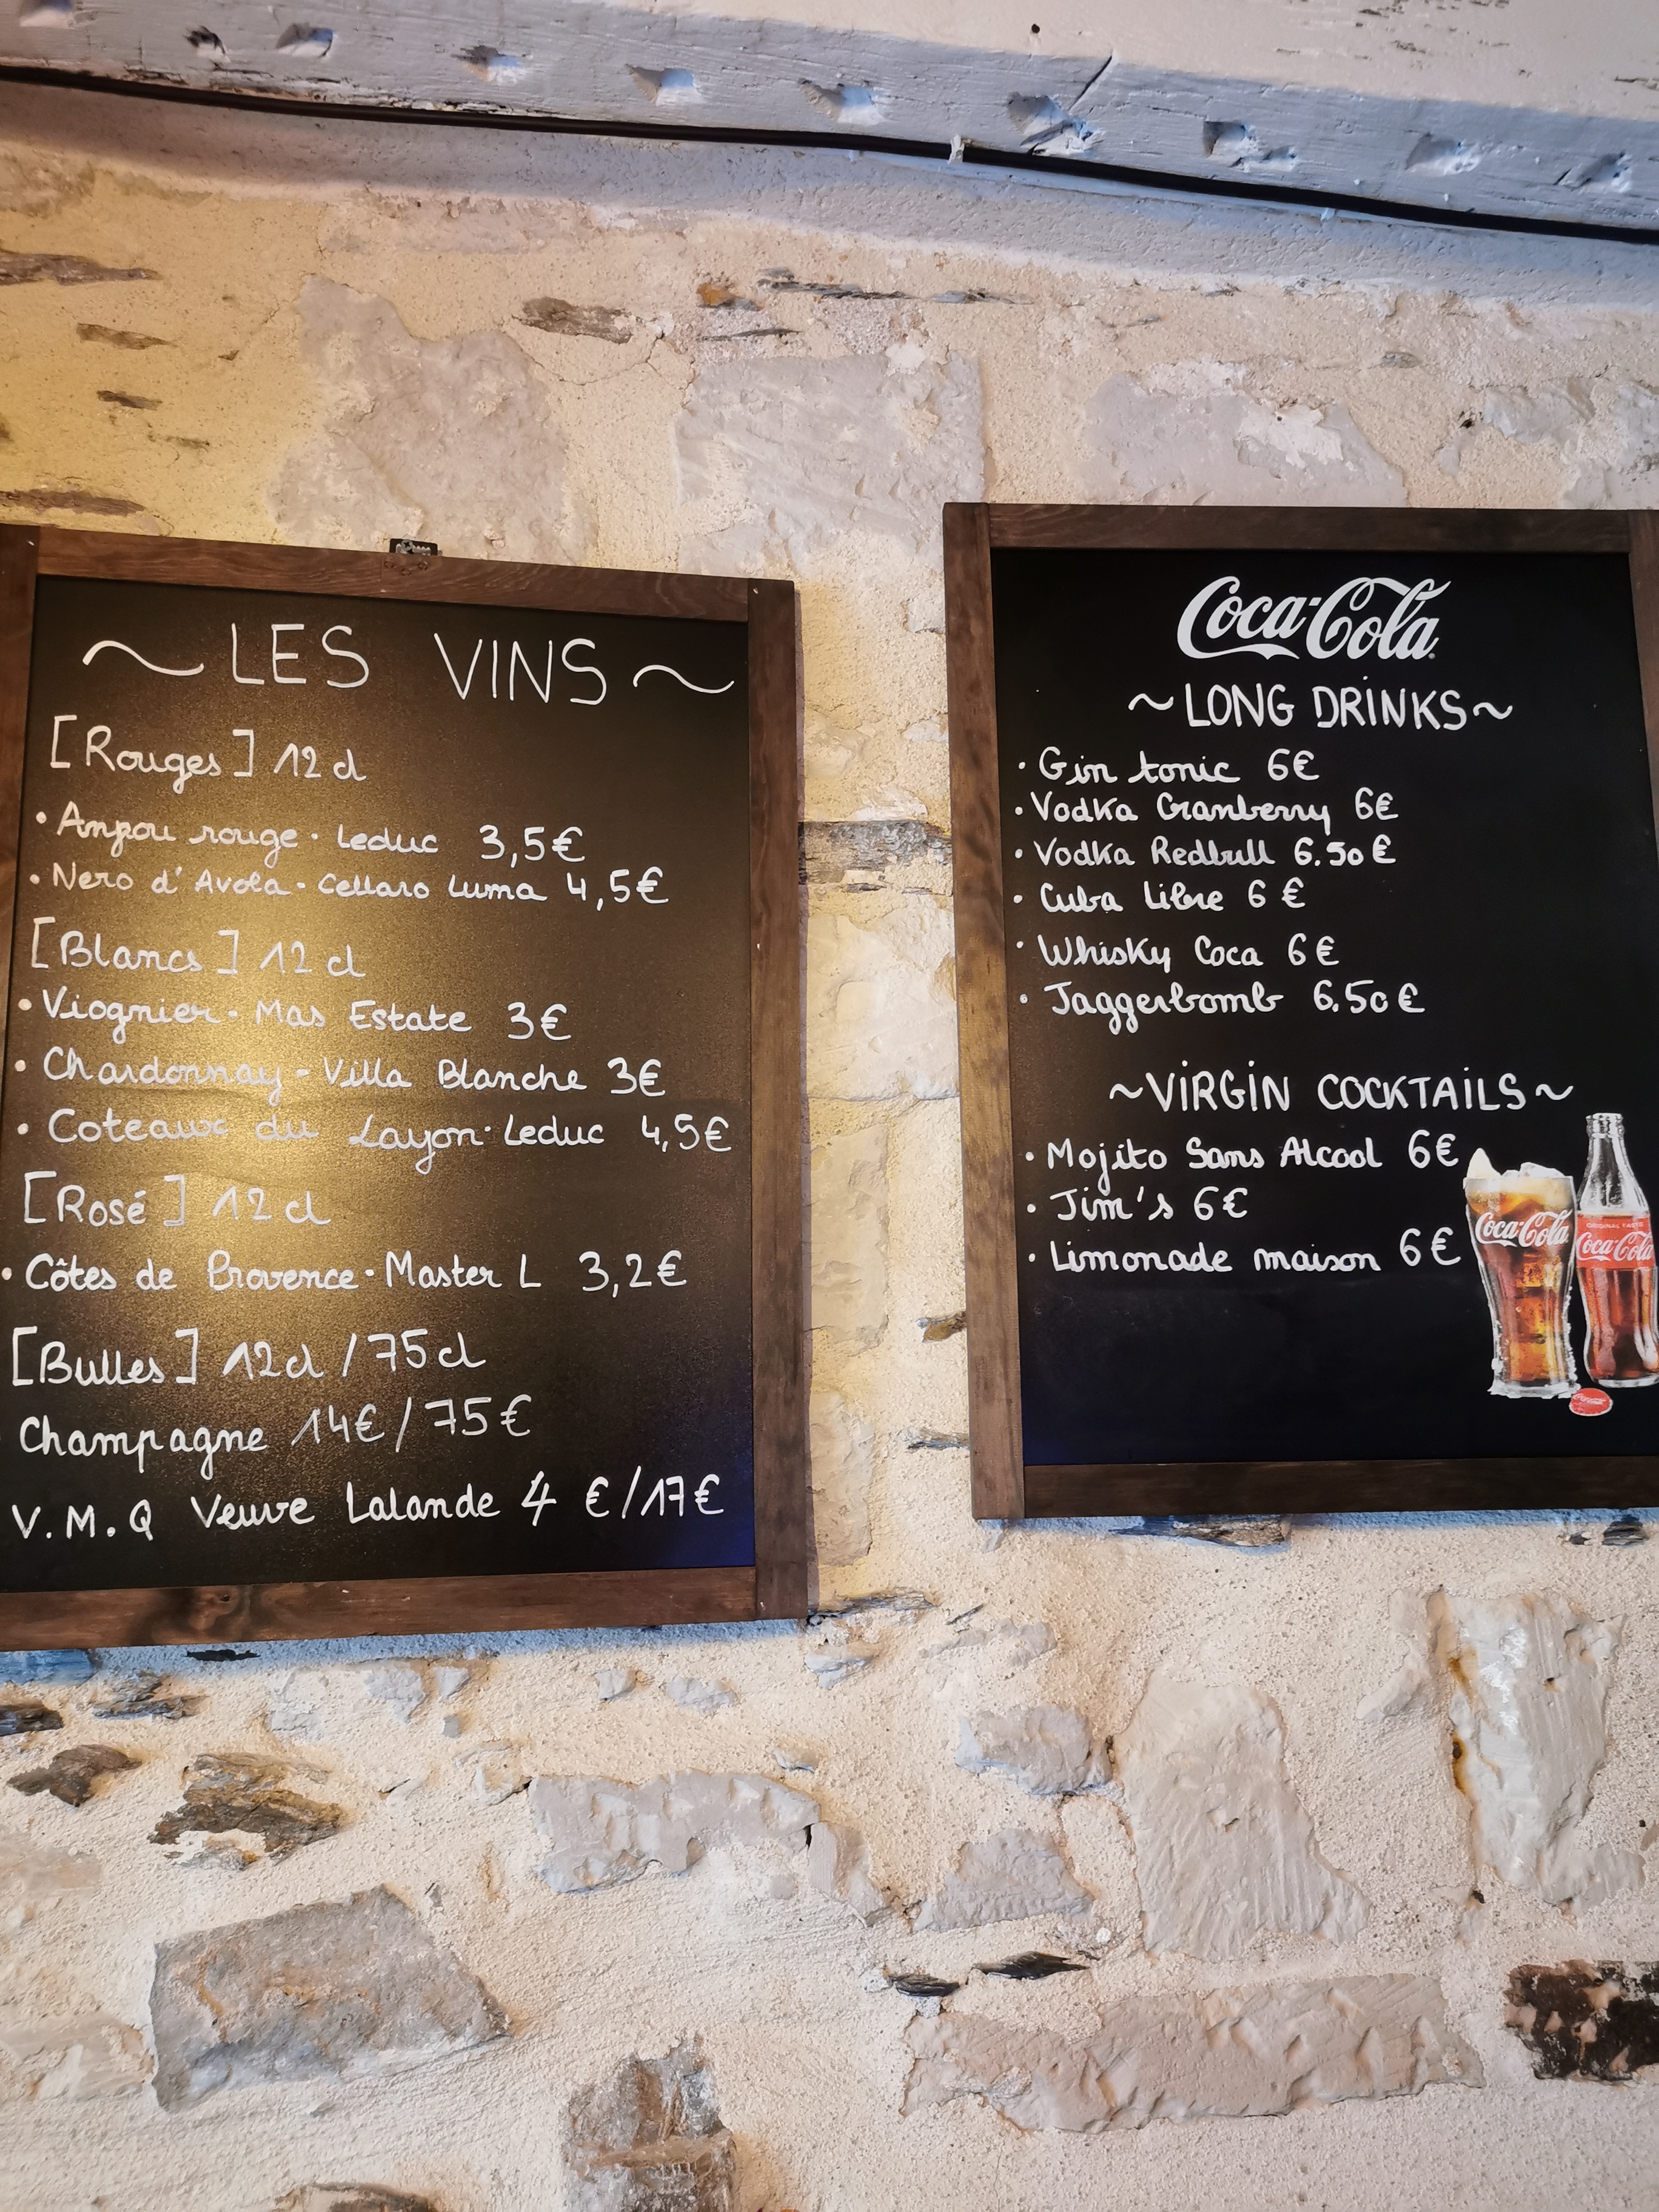 ~ LES VINS ~
[Rouges] 12 cl
• Anpou rouge • Leduc 3,5€
• Nero d'Avola • Cellaro Luma 4,5€
[Blancs] 12 cl
• Viognier • Mas Estate 3€
• Chardonnay - Villa Blanche 3€
• Coteaux du Layon • Leduc 4,5€
[Rosé] 12 cl
• Côtes de Provence • Master L 3,2€
[Bulles] 12cl / 75cl
Champagne 14€ / 75€
V.M.Q Veuve Lalande 4 € / 17€
Coca-Cola
~ LONG DRINKS ~
• Gin tonic 6€
• Vodka Cranberry 6€
• Vodka Redbull 6.50€
• Cuba Libre 6 €
• Whisky Coca 6€
• Jaggerbomb 6.50€
~ VIRGIN COCKTAILS ~
• Mojito Sans Alcool 6€
• Jim's 6€
• Limonade maison 6€
Coca-Cola
ORIGINAL TASTE
Coca-Cola